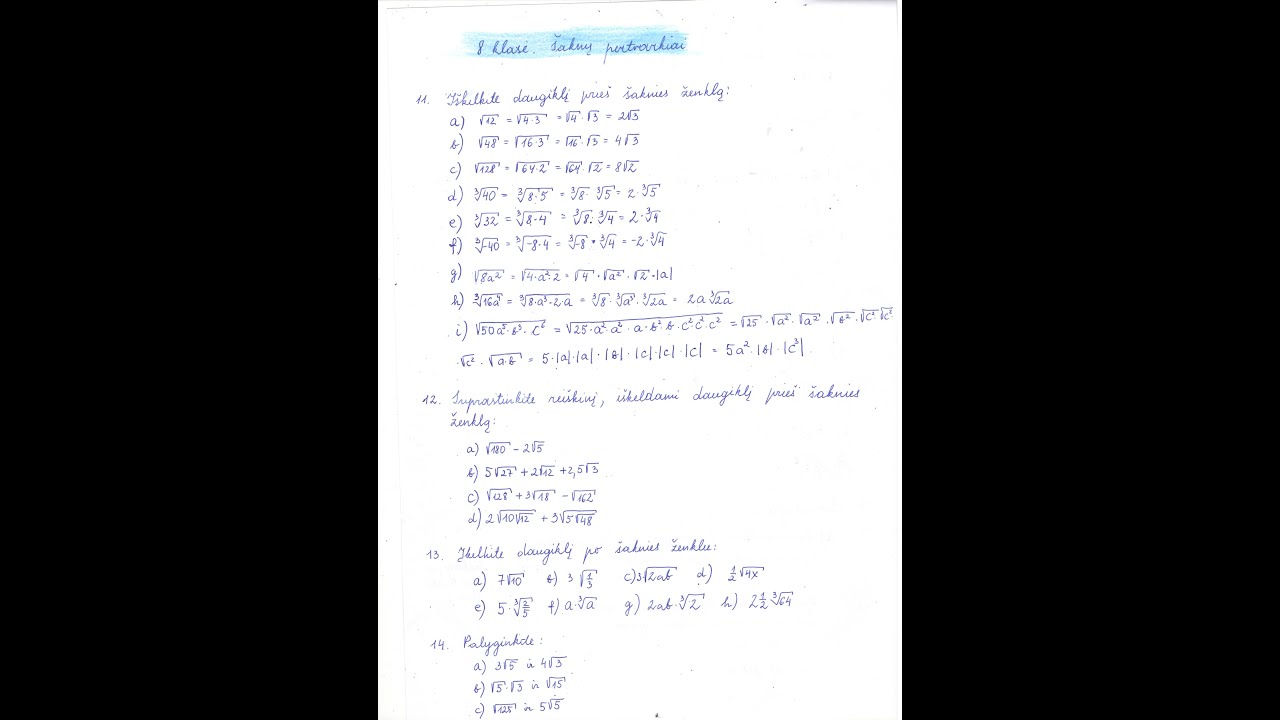 8 klasė. Šaknų pertvarkiai
11. Iškelkite daugiklį prieš šaknies ženklą:
a) √12 = √4·3 = √4·√3 = 2√3
b) √48 = √16·3 = √16·√3 = 4√3
c) √128 = √64·2 = √64·√2 = 8√2
d) ∛40 = ∛8·5 = ∛8·∛5 = 2·∛5
e) ∛32 = ∛8·4 = ∛8·∛4 = 2·∛4
f) ∛-40 = ∛-8·4 = ∛-8·∛4 = -2·∛4
g) √8a² = √4·a²·2 = √4·√a²·√2·|a|
h) ∛16a⁴ = ∛8·a³·2a = ∛8·∛a³·∛2a = 2a∛2a
i) √50a⁵·b³·c⁶ = √25·a²·a²·a·b²·b·c²·c²·c² = √25·√a²·√a²·√b²·√c²√c²·
·√c²·√a·b = 5·|a|·|a|·|b|·|c|·|c|·|c| = 5a²·|b|·|c³|.
12. Suprastinkite reiškinį, iškeldami daugiklį prieš šaknies
ženklą:
a) √180 - 2√5
b) 5√27 + 2√12 + 2,5√3
c) √128 + 3√18 - √162
d) 2√10√12 + 3√5√48
13. Įkelkite daugiklį po šaknies ženklu:
a) 7√10 b) 3√1/3 c) 3√2ab d) 1/2√4x
e) 5·∛2/5 f) a·∛a g) 2ab·∛2 h) 2 1/2 ∛64
14. Palyginkite:
a) 3√5 ir 4√3
b) √5·√3 ir √15
c) √125 ir 5√5